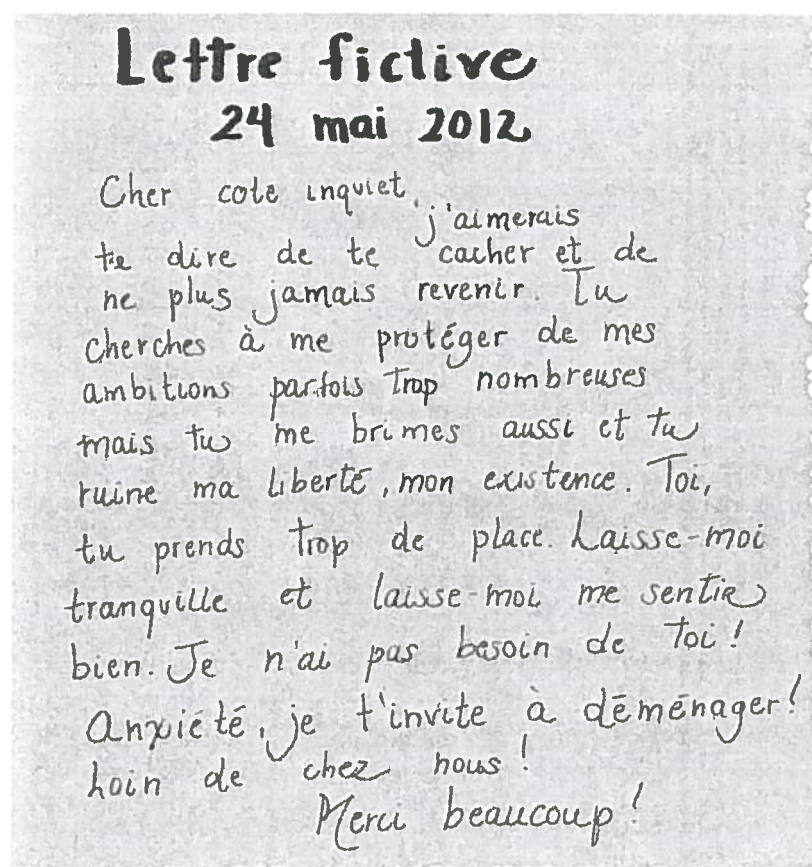 Lettre fictive
24 mai 2012
Cher cote inquiet,
j'aimerais
te dire de te cacher et de
ne plus jamais revenir. Tu
cherches à me protéger de mes
ambitions parfois trop nombreuses
mais tu me brimes aussi et tu
ruine ma liberté, mon existence. Toi,
tu prends trop de place. Laisse-moi
tranquille et laisse-moi me sentir
bien. Je n'ai pas besoin de toi!
Anxiété, je t'invite à déménager!
Loin de chez nous!
Merci beaucoup!